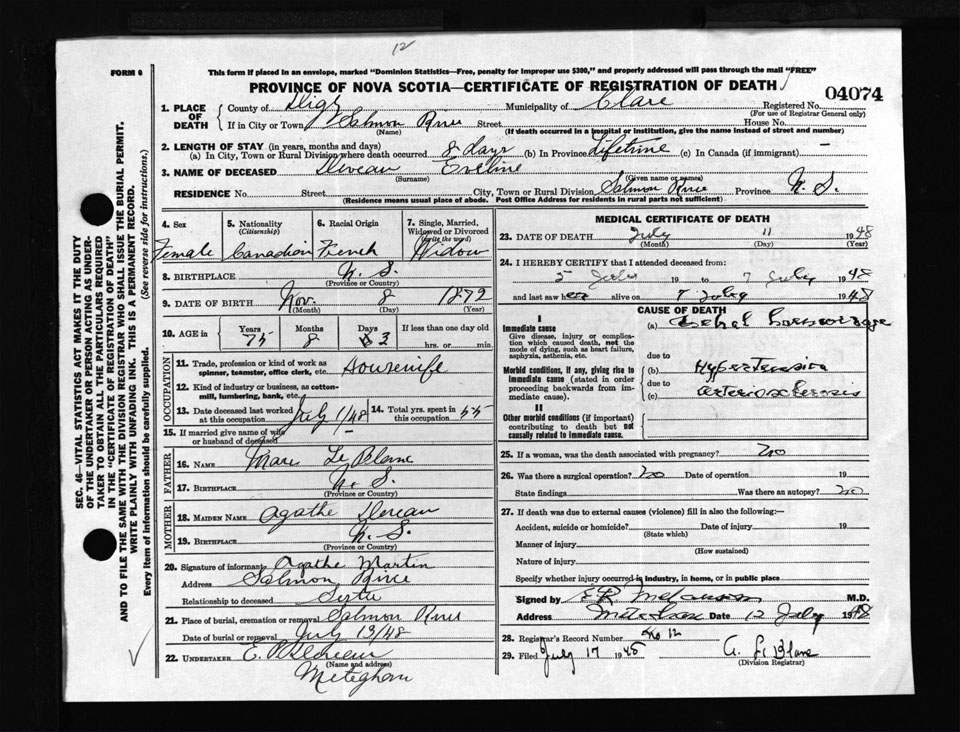 12
FORM 6
This form if placed in an envelope, marked "Dominion Statistics—Free, penalty for improper use $300," and properly addressed will pass through the mail "FREE"
PROVINCE OF NOVA SCOTIA—CERTIFICATE OF REGISTRATION OF DEATH
04074
1. PLACE OF DEATH
County of Digby Municipality of Clare Registered No.
(For use of Registrar General only)
If in City or Town Salmon River Street House No.
(Name) (If death occurred in a hospital or institution, give the name instead of street and number)
2. LENGTH OF STAY (in years, months and days)
(a) In City, Town or Rural Division where death occurred 8 days (b) In Province Lifetime (c) In Canada (if immigrant) —
3. NAME OF DECEASED Deveau Eveline
(Surname) (Given name or names)
RESIDENCE No. Street City, Town or Rural Division Salmon River Province N. S.
(Residence means usual place of abode. Post Office Address for residents in rural parts not sufficient)
4. Sex
Female
5. Nationality
(Citizenship)
Canadian
6. Racial Origin
French
7. Single, Married, Widowed or Divorced
(write the word)
Widow
8. BIRTHPLACE N. S.
(Province or Country)
9. DATE OF BIRTH Nov. 8 1872
(Month) (Day) (Year)
10. AGE in
Years Months Days If less than one day old
75 8 3 hrs. or min.
OCCUPATION
11. Trade, profession or kind of work as spinner, teamster, office clerk, etc. Housewife
12. Kind of industry or business, as cotton-mill, lumbering, bank, etc.
13. Date deceased last worked at this occupation July 1/48
14. Total yrs. spent in this occupation 55
15. If married give name of wife or husband of deceased —
FATHER
16. NAME Marc Le Blanc
17. BIRTHPLACE N. S.
(Province or Country)
MOTHER
18. MAIDEN NAME Agathe Deveau
19. BIRTHPLACE N. S.
(Province or Country)
20. Signature of informant Agathe Martin
Address Salmon River
Relationship to deceased Sister
21. Place of burial, cremation or removal Salmon River
Date of burial or removal July 13/48
22. UNDERTAKER
(Name and address)
Meteghan
MEDICAL CERTIFICATE OF DEATH
23. DATE OF DEATH July 11 1948
(Month) (Day) (Year)
24. I HEREBY CERTIFY that I attended deceased from:
5 July 19 to 7 July 1948
and last saw her alive on 7 July 1948
CAUSE OF DEATH
I
Immediate cause
Give disease, injury or complication which caused death, not the mode of dying, such as heart failure, asphyxia, asthenia, etc.
(a)
due to
Morbid conditions, if any, giving rise to immediate cause (stated in order proceeding backwards from immediate cause).
(b) Hypertension
due to
(c) arteriosclerosis
II
Other morbid conditions (if important) contributing to death but not causally related to immediate cause.
25. If a woman, was the death associated with pregnancy? no
26. Was there a surgical operation? no Date of operation 19
State findings Was there an autopsy? no
27. If death was due to external causes (violence) fill in also the following:—
Accident, suicide or homicide? Date of injury 19
(State which)
Manner of injury
(How sustained)
Nature of injury
Specify whether injury occurred in industry, in home, or in public place
Signed by M.D.
Address Date 12 July 1948
28. Registrar's Record Number No 12
29. Filed July 17 1948 A. LeBlanc
(Division Registrar)
SEC. 46—VITAL STATISTICS ACT MAKES IT THE DUTY OF THE UNDERTAKER OR PERSON ACTING AS UNDERTAKER TO OBTAIN ALL THE PARTICULARS REQUIRED IN THE "CERTIFICATE OF REGISTRATION OF DEATH" AND TO FILE THE SAME WITH THE DIVISION REGISTRAR WHO SHALL ISSUE THE BURIAL PERMIT.
WRITE PLAINLY WITH UNFADING INK. THIS IS A PERMANENT RECORD.
Every item of information should be carefully supplied. (See reverse side for instructions.)